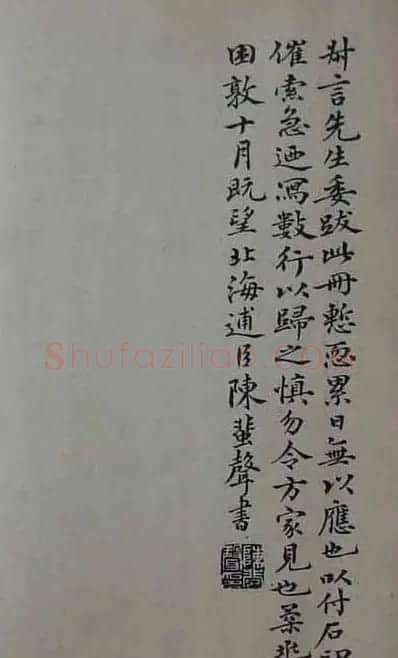 言先生委跋此冊慙恧累日無以應也以付石
催索急迺寫數行以歸之慎勿令方家見也柔兆
困敦十月既望北海逋臣陳蜚聲書
Shufaziliao.com